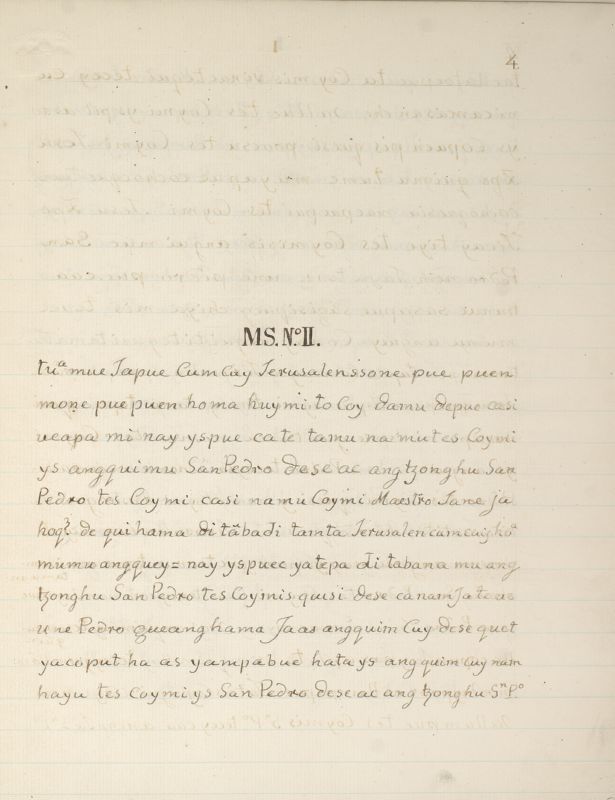 4.
MS. Nº II.
tuª mue Japue Cumcay Jerusalenssone pue puen
mone pue puen homa huymi to Coy damu depue casi
veapa mi nay yspue cate tamu na mutes Coymi
ys angquimu San Pedro dese ac angtzonghu San
Pedro tes Coymi casi namu Coymi Maestro Jane ja
de quihama di tabadi tamta Jerusalen
mumu angquey= nay yspuec yatepa di tabana mu ang
tzonghu San Pedro tes Coymis quisi dese canam Jate ac
u ne Pedro gueang hama Jaas angquim Cuy dese quet
yacoput ha as yampabue hata ys ang quim Cuy nam
hayu tes Coymi ys San Pedro dese ac ang tzonghu Sⁿ Pº